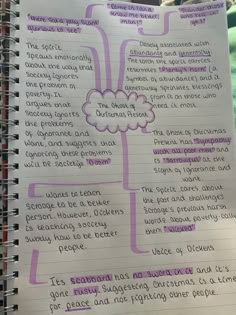 "there was a boy
glorious to see!"
"Come in! and
know me better
man!"
The spirit
speaks emotionally
about the way that
society ignores
the problem of
poverty. It
argues that
society ignores
the problems
of ignorance and
want, and suggests that
ignoring these problems
will be society's "Doom"
Closely associated with
abundance and generosity.
The torch the spirit carries
resembles "Plenty's Horn" (a
symbol of abundance) and it
generously sprinkles blessings
from it on those who
need it most.
The Ghost of
Christmas Present
The Ghost of Christmas
Present has "Sympathy
with all poor men" and
is "sorrowful" at the
signs of ignorance and
want.
Wants to teach
Scrooge to be a better
person. However, Dickens
is teaching society
how to be better
people.
The spirit cares about
the poor and challenges
Scrooge's previous harsh
words about poverty
them "wicked"
Voice of Dickens
Its scabbard has no sword in it and it's
gone rusty. Suggesting Christmas is a time
for peace and not fighting other people.